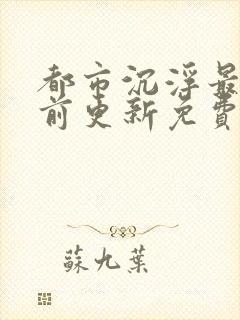 都市沉浮最
前更新免費
蘇九葉